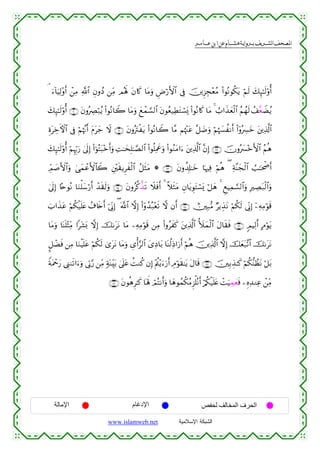 المصحف الشريف برواية هشام عن ابن عامر
أُوْلَٰٓئِكَ لَمْ يَكُونُواْ مُعْجِزِينَ فِى ٱلْأَرْضِ وَمَا كَانَ لَهُم مِّن دُونِ ٱللَّهِ مِنْ أَوْلِيَآءَ ۘ
يُضَعَّفُ لَهُمُ ٱلْعَذَابُ ۚ مَا كَانُواْ يَسْتَطِيعُونَ ٱلسَّمْعَ وَمَا كَانُواْ يُبْصِرُونَ أُوْلَٰٓئِكَ
ٱلَّذِينَ خَسِرُوٓاْ أَنفُسَهُمْ وَضَلَّ عَنْهُم مَّا كَانُواْ يَفْتَرُونَ لَا جَرَمَ أَنَّهُمْ فِى ٱلْأَخِرَةِ
هُمُ ٱلْأَخْسَرُونَ إِنَّ ٱلَّذِينَ ءَامَنُواْ وَعَمِلُواْ ٱلصَّٰلِحَٰتِ وَأَخْبَتُوٓاْ إِلَىٰ رَبِّهِمْ أُوْلَٰٓئِكَ
أَصْحَٰبُ ٱلْجَنَّةِ ۖ هُمْ فِيهَا خَٰلِدُونَ ۞ مَثَلُ ٱلْفَرِيقَيْنِ كَٱلْأَعْمَىٰ وَٱلْأَصَمِّ
وَٱلْبَصِيرِ وَٱلسَّمِيعِ ۚ هَلْ يَسْتَوِيَانِ مَثَلًا ۚ أَفَلَا تَذَّكَّرُونَ وَلَقَدْ أَرْسَلْنَا نُوحًا إِلَىٰ
قَوْمِهِۦٓ إِنِّى لَكُمْ نَذِيرٌ مُّبِينٌ أَن لَّا تَعْبُدُوٓاْ إِلَّا ٱللَّهَ ۖ إِنِّىٓ أَخَافُ عَلَيْكُمْ عَذَابَ
يَوْمٍ أَلِيمٍ فَقَالَ ٱلْمَلَأُ ٱلَّذِينَ كَفَرُواْ مِن قَوْمِهِۦ مَا نَرَىٰكَ إِلَّا بَشَرًا مِّثْلَنَا وَمَا
نَرَىٰكَ ٱتَّبَعَكَ إِلَّا ٱلَّذِينَ هُمْ أَرَاذِلُنَا بَادِىَ ٱلرَّأْىِ وَمَا نَرَىٰ لَكُمْ عَلَيْنَا مِن فَضْلٍ
بَلْ نَظُنُّكُمْ كَٰذِبِينَ قَالَ يَٰقَوْمِ أَرَءَيْتُمْ إِن كُنتُ عَلَىٰ بَيِّنَةٍ مِّن رَّبِّى وَءَاتَىٰنِى رَحْمَةً
مِّنْ عِندِهِۦ فَعَمِيَتْ عَلَيْكُمْ أَنُلْزِمُكُمُوهَا وَأَنتُمْ لَهَا كَٰرِهُونَ
الحرف المخالف لحفص الإدغام الإمالة
www.islamweb.net الشبكة الإسلامية